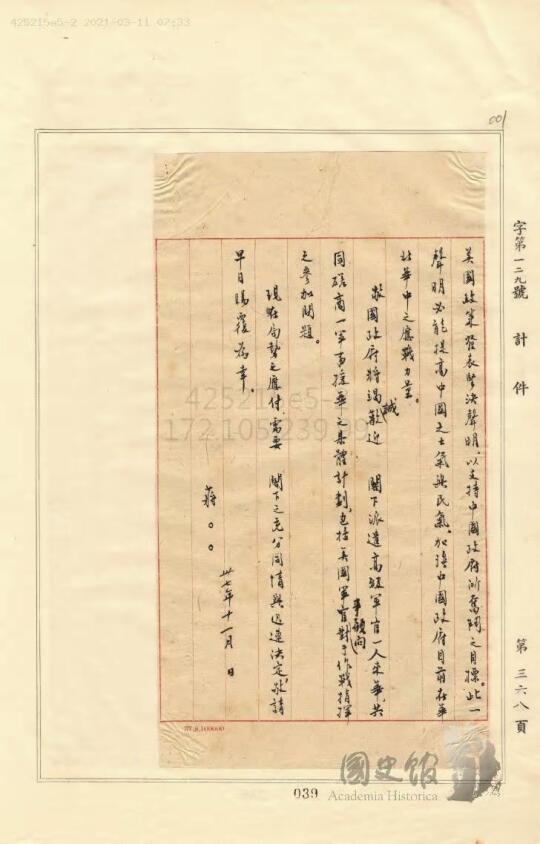 425215e5-2 2021-03-11 07:33
001
字第一二九號 計 件 第三六八頁
美國政策發表堅決聲明，以支持中國政府所奮鬥之目標。此一
聲明必能提高中國之士氣與民氣，加強中國政府目前在華
北華中之應戰力量。
敝國政府將竭誠歡迎 閣下派遣高級軍官一人來華，共
同磋商一軍事援華之具體計劃，包括美國軍事顧問對于作戰指揮
之參加問題。
現在局勢之應付，需要 閣下之充分同情與迅速決定，敬請
早日賜覆為幸。
蔣○○
卅七年十一月 日
425215e5-2
172.105.239.99
國史館
Academia Historica
039